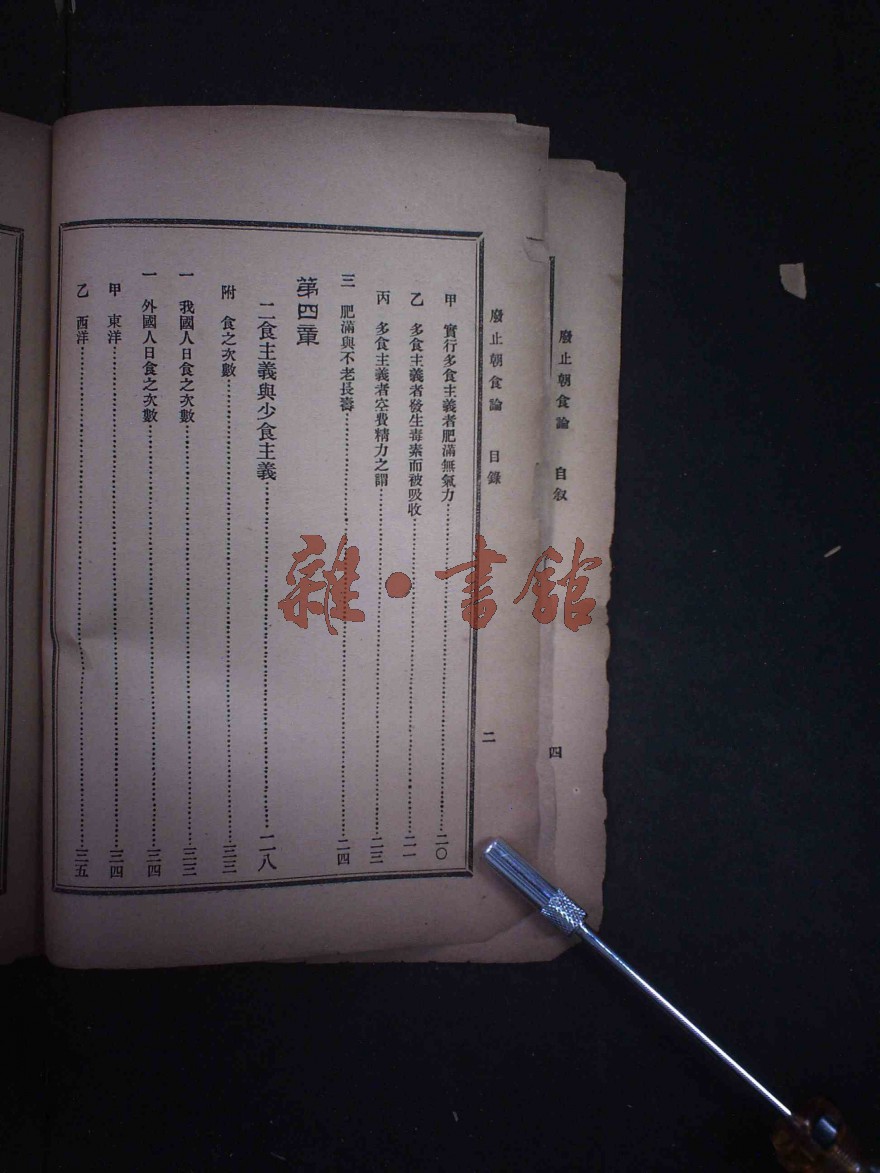 廢止朝食論 自叙 四
廢止朝食論 目錄 二
甲 實行多食主義者肥滿無氣力……二〇
乙 多食主義者發生毒素而被吸收……二一
丙 多食主義者空費精力之謂……二三
三 肥滿與不老長壽……二四
第四章
二食主義與少食主義……二八
附 食之次數……三三
一 我國人日食之次數……三三
一 外國人日食之次數……三四
甲 東洋……三四
乙 西洋……三五
雜·書館